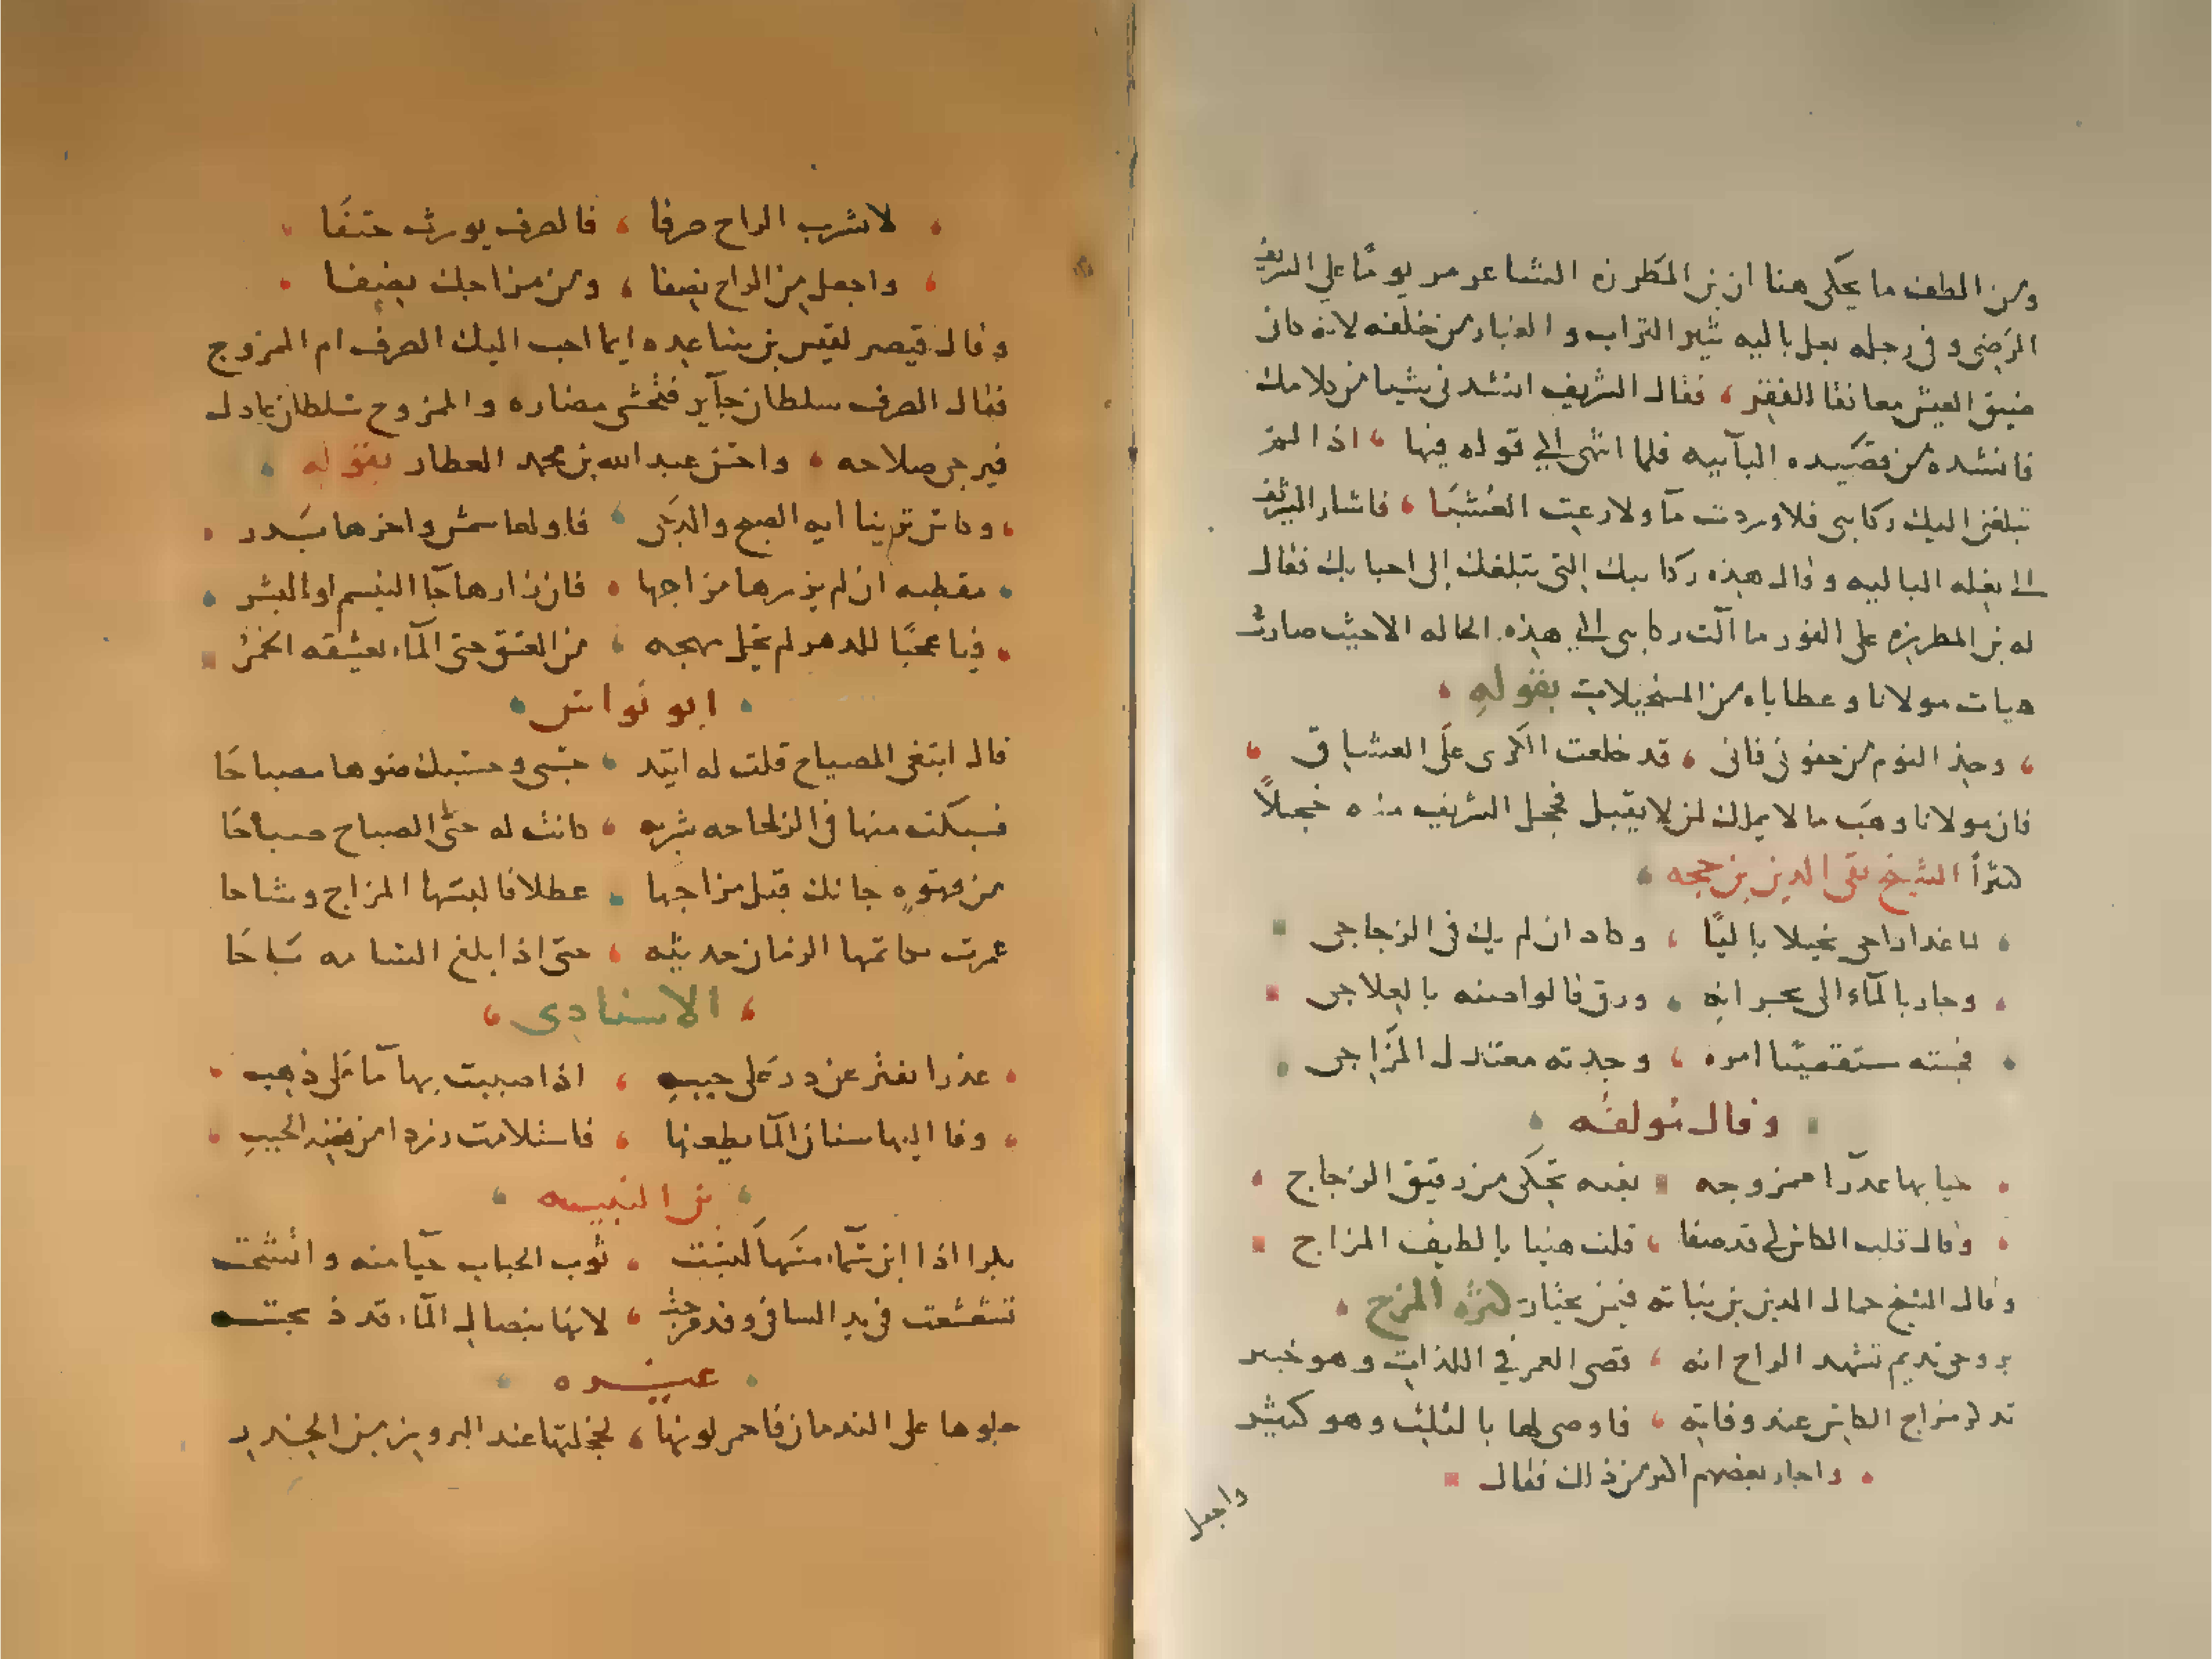 ومن الطف ما يحكى هنا ان بن المطرزه الشاعر مر يومًا على الشريف
الرضى و فى رجله نعل باليه تثير التراب و الغبار من خلفه لانه كان
ضيق العيش معانقا الفقر، فقال الشريف انشدنى شيا من كلامك
فانشده من قصيده البآييه فلما انتهى الى قوله فيها، اذا لم
تبلغنى اليك ركابى فلا وردت مآ ولا رعت العشبا، فاشار الشريف
الى نعله الباليه و قال هذه ركابيك التى تبلغك الى احبابك فقال
له بن المطرزه على الفور ما آلت ركابى الى هذه الحاله الا حيث صارت
هبات مولانا و عطاياه من المستحيلات بقوله
، وخذ النوم من جفونى فانى، قد خلعت الكرى على العشاق
فان مولانا وهب ما لا يملك لمن لا يقبل فخجل الشريف منه خجلاً
الشيخ تقى الدين بن حجه
لما غدا راحى بخيلا باليًا، وكاد ان لم يك فى الزجاجى
وجاد بالمآء الى بحرانه، ورق قالوا صفه بالعلاجى
فجسته مستقصيًا امره، وجدته معتدل المزاجى
وقال مولفه
حيا بها عذرا ممزوجه بغيه تحكى من رقيق الزجاج
وقال قلب الكاس لى قد صفا، قلت هنيا يا لطيف المزاج
وقال الشيخ جمال الدين بن نباته فيمن يختار كثره المزج
بروحى نديم تشهد الراح انه، قضى العمر فى اللذات وهو خبير
تذكر مزاج الكاس عند وفاته، فاوصى لها بالثلث وهو كثير
واجاد بعضهم اكثر من ذلك فقال
واجعل
لا تشرب الراح صرفا، فالصرف يورث حتفًا
واجعل من الراح نصفا، ومن مزاجك نصفا
وقال قيصر لقيس بن ساعده ايما احب اليك الصرف ام الممزوج
فقال الصرف سلطان جآير فتخشى مضاره والممزوج سلطان عادل
فيرجى صلاحه، واحسن عبد الله بن محمد العطار بقوله
، وكاس ترينا ايه الصبح والدجى، فاولها شمس واخرها بدر
مقطبه ان لم يزرها مزاجها، فان زارها جآ التبسم والبشر
، فيا عجبًا للدهر لم يخل مهجه، من العشق حتى المآء يعشقه الخمر
ابو نواس
قال ابتغى المصباح قلت له ايتد، حسبى وحسبك ضوها مصباحا
فسكبت منها فى الزجاجه شربه، كانت له حتى الصباح صباحا
من قهوةٍ جاتك قبل مزاجها، عطلا فالبسها المزاج وشاحا
عمرت يكاتمها الزمان حديثه، حتى اذا بلغ السامه باحا
عذرا تفتر عن در على حببٍ، اذا صببت بها مآ على ذهب
، وفا اليها سنان المآ يطعنها، فاستلامت زردا من فضه الحببِ
بن النبيه
بكرا اذا ابن سمآء مسها لبست، ثوب الحباب حيآ منه واتشحت
تشعشعت فى يد الساقى وقد مزجت، لانها بنصال المآء قد ذبحت
غيره
جلوها على الندمان فاحمر لونها، لخجلتها عند البروز من الخدر